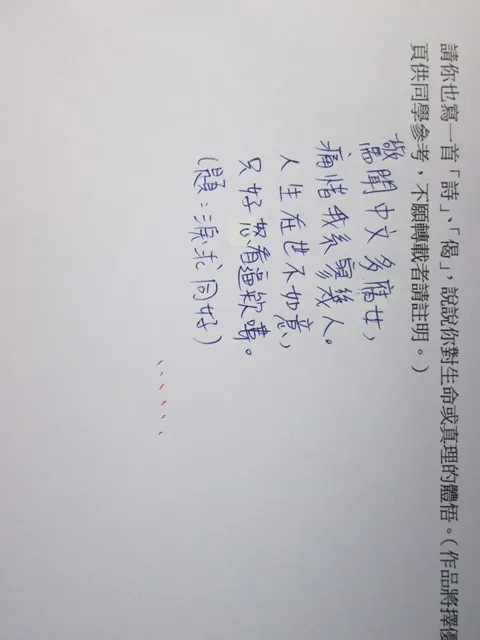 請你也寫一首「詩」、「偈」，說說你對生命或真理的體悟。（作品將擇優
頁供同學參考，不願轉載者請註明。）
敬聞中文多腐女，
痛惜我系寥幾人。
人生在世不如意，
只好怒看逼歎噓。
（題：淚求同好）